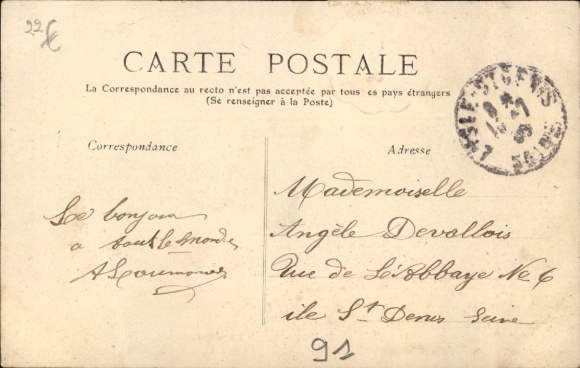 22€
CARTE POSTALE
La Correspondance au recto n'est pas acceptée par tous es pays étrangers
(Se renseigner à la Poste)
Correspondance
Adresse
Le bonjour
a tout le monde
Mademoiselle
Angèle Devallois
Rue de L'Abbaye No 6
ile St Denis Seine
L'ISLE-ST-DENIS
SEINE
91